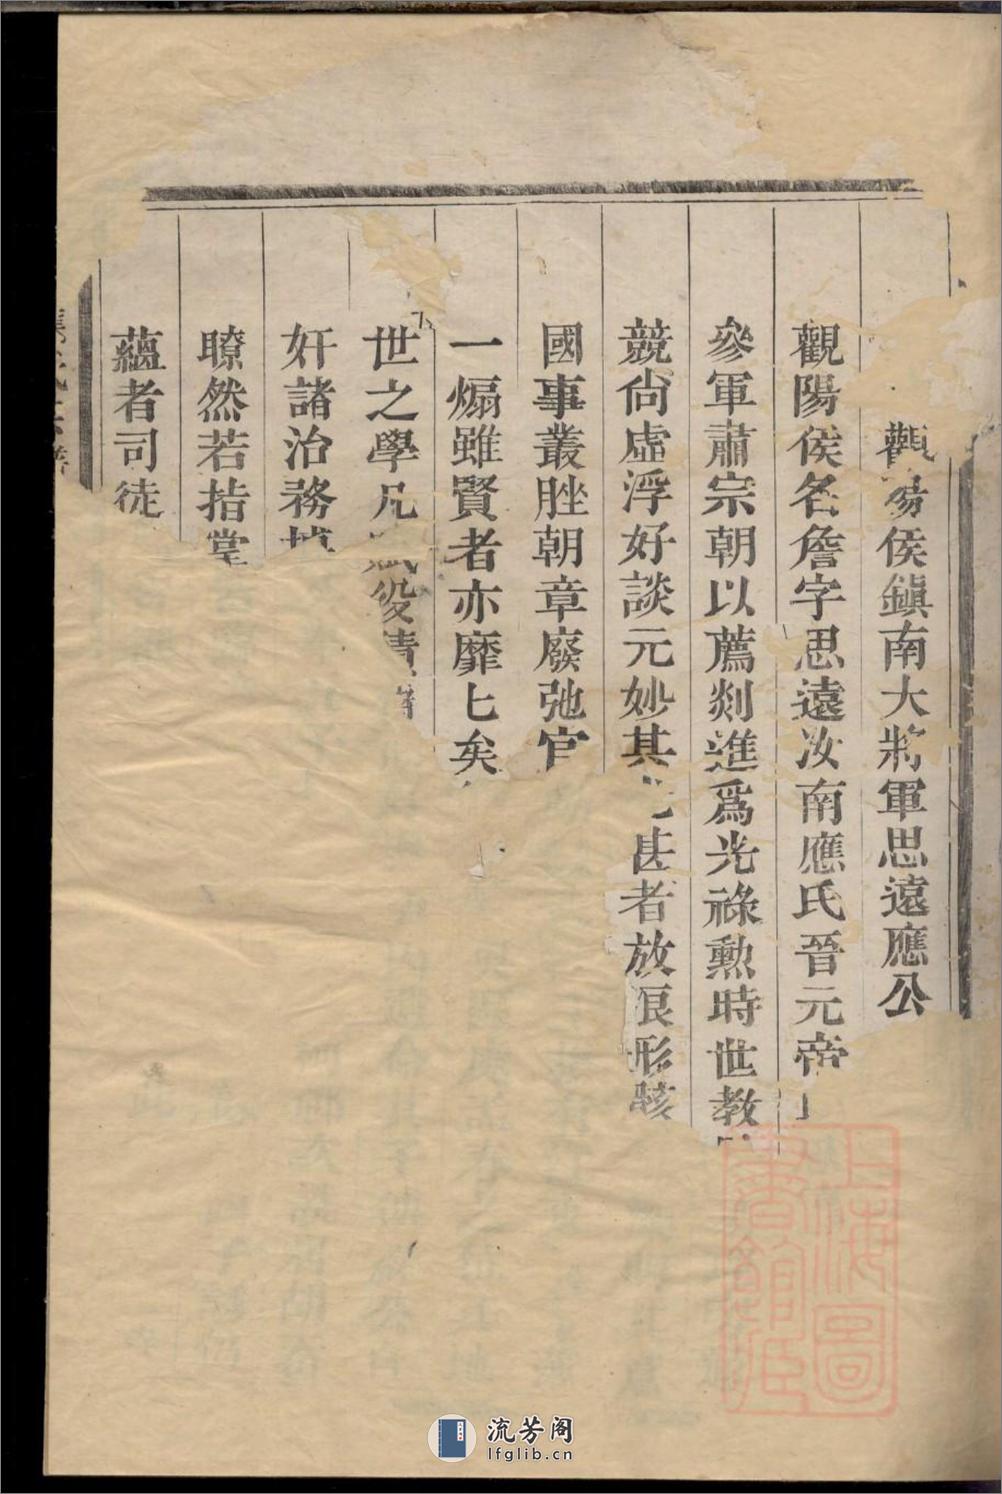 觀陽侯鎮南大將軍思遠應公
觀陽侯名詹字思遠汝南應氏晉元帝
參軍肅宗朝以薦剡進爲光祿勲時世教
競尙虛浮好談元妙其甚者放浪形骸
國事叢脞朝章廢弛官
一煽雖賢者亦靡匕矣
世之學凡賦役
奸諸治務
瞭然若指掌
蘊者司徒
上海圖書館臧
流芳阁
lfglib.cn